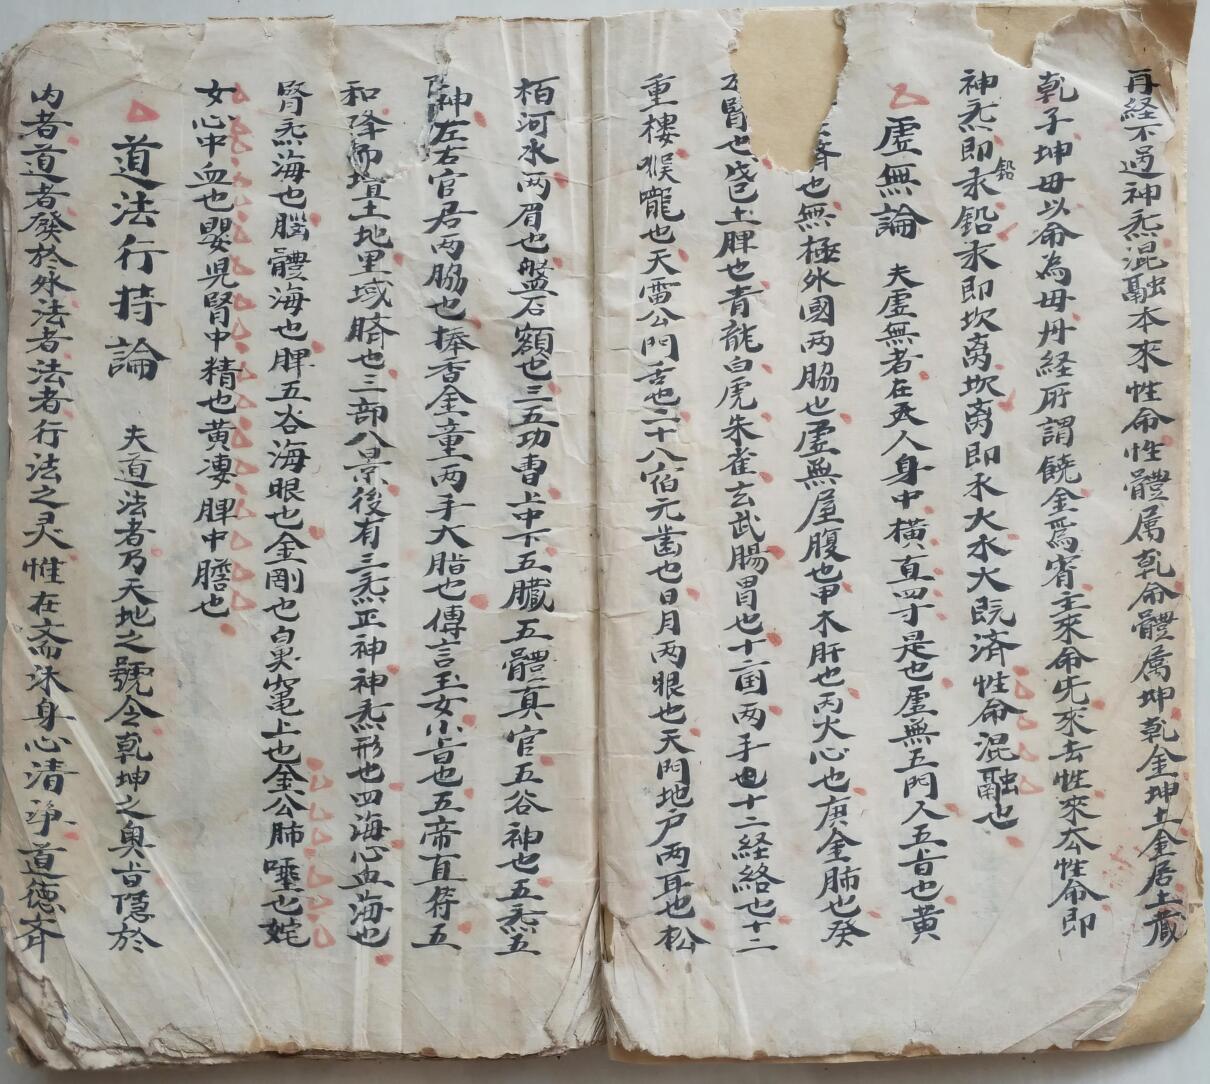 再経不過神炁混融本來性命性體属乾命體属坤乾金坤土金居土藏
乾子坤母以命為母丹経所謂饒金為賓主來命先來去性來去性命即
神炁即汞鉛汞即坎离坎离即水火水火既済性命混融也
鉛
虛無論 夫虛無者在夫人身中橫直四寸是也虛無五門人五旨也黄
也無極外國两脇也虛無屋腹也甲木肝也丙火心也庚金肺也癸
腎也戊己土脾也青龍白虎朱雀玄武腸胃也十二國两手也十二経絡也十二
重樓喉嚨也天雷公門舌也二十八宿元歯也日月两眼也天門地户两耳也松
栢河水两眉也盤石額也三五功曹上中下五臟五體真官五谷神也五炁五
神左右官君两脇也捧香金童两手大脂也傳言玉女小旨也五帝直符五
和降而壇土地里域臍也三部八景後有三炁正神神炁形也四海心血海也
腎炁海也腦髓海也脾五谷海眼也金剛也鼻竃上也金公肺唾也姹
女心中血也嬰児腎中精也黄凄脾中膽也
道法行持論 夫道法者乃天地之號令乾坤之奥旨隱於
内者道道者發於外法者法者行法之灵惟在斎沐身心清净道德斉